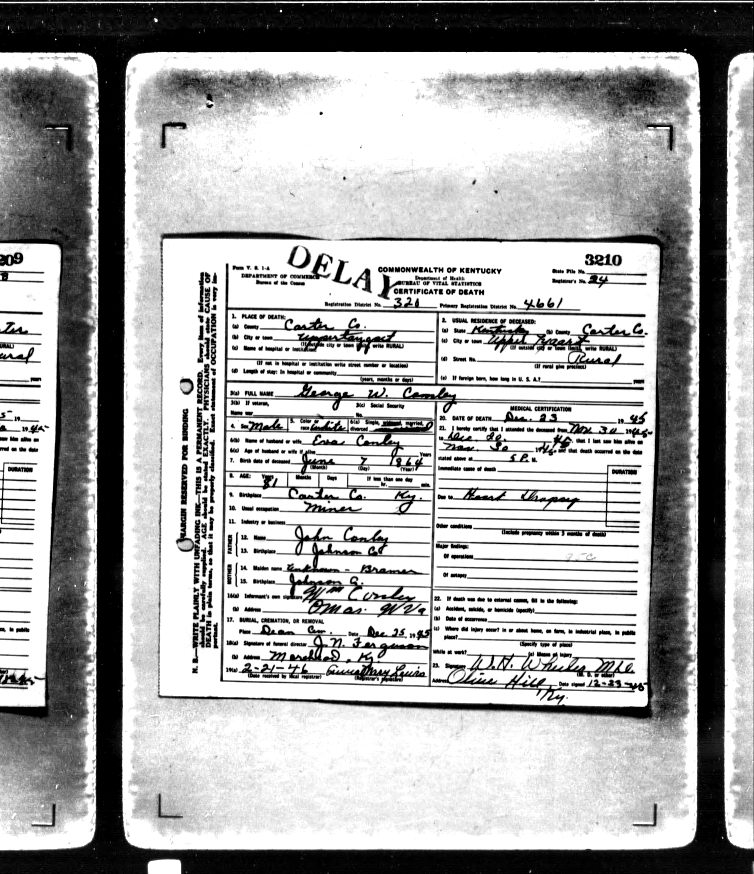 3210
DELAY
Form V. S. 1-A
DEPARTMENT OF COMMERCE
Bureau of the Census
COMMONWEALTH OF KENTUCKY
Department of Health
BUREAU OF VITAL STATISTICS
CERTIFICATE OF DEATH
State File No.
Registrar's No. 24
Registration District No. 320 Primary Registration District No. 4661
MARGIN RESERVED FOR BINDING
N. B.—WRITE PLAINLY WITH UNFADING INK—THIS IS A PERMANENT RECORD. Every item of information
should be carefully supplied. AGE should be stated EXACTLY. PHYSICIANS should state CAUSE OF
DEATH in plain terms, so that it may be properly classified. Exact statement of OCCUPATION is very im-
portant.
1. PLACE OF DEATH:
(a) County Carter Co.
(b) City or town
(If outside city or town limits, write RURAL)
(c) Name of hospital or institution
(If not in hospital or institution write street number or location)
(d) Length of stay: In hospital or community
(years, months or days)
2. USUAL RESIDENCE OF DECEASED:
(a) State Kentucky (b) County Carter Co.
(c) City or town Upper
(If outside city or town limits, write RURAL)
(d) Street No. Rural
(If rural give precinct)
(e) If foreign born, how long in U. S. A.? years
3(a) FULL NAME George W. Conley
3(b) If veteran,
Name war
3(c) Social Security
No.
4. Sex Male 5. Color or race White 6(a) Single, widowed, married, divorced
6(b) Name of husband or wife Eva Conley
6(c) Age of husband or wife if alive Years
7. Birth date of deceased June 7 1864
(Month) (Day) (Year)
8. AGE: Years Months Days If less than one day
81 hr. min.
9. Birthplace Carter Co. Ky.
10. Usual occupation Miner
11. Industry or business
FATHER
12. Name John Conley
13. Birthplace Johnson Co
MOTHER
14. Maiden name Unknown - Bramer
15. Birthplace Johnson
16(a) Informant's own signature Wm Conley
(b) Address Omar, W Va
17. BURIAL, CREMATION, OR REMOVAL
Place Dean Date Dec 25, 1945
18(a) Signature of funeral director J. N. Ferguson
(b) Address Morehead, Ky.
19(a) 2-21-46 Mary Lewis
(Date received by local registrar) (Registrar's signature)
MEDICAL CERTIFICATION
20. DATE OF DEATH Dec. 23 1945
21. I hereby certify that I attended the deceased from Nov. 30 1945
to Dec. 45, that I last saw him alive on
Nov. 30 and that death occurred on the date
stated above at 5 P. M.
Immediate cause of death
DURATION
Due to Heart Dropsy
Other conditions
(Include pregnancy within 3 months of death)
Major findings:
Of operations
Of autopsy
22. If death was due to external causes, fill in the following:
(a) Accident, suicide, or homicide (specify)
(b) Date of occurrence
(c) Where did injury occur? In or about home, on farm, in industrial place, in public
place?
(Specify type of place)
While at work? (e) Means of injury
23. Signature W. H. Wheeler M.D.
(M. D. or other)
Address Olive Hill, Ky. Date signed 12-23-45